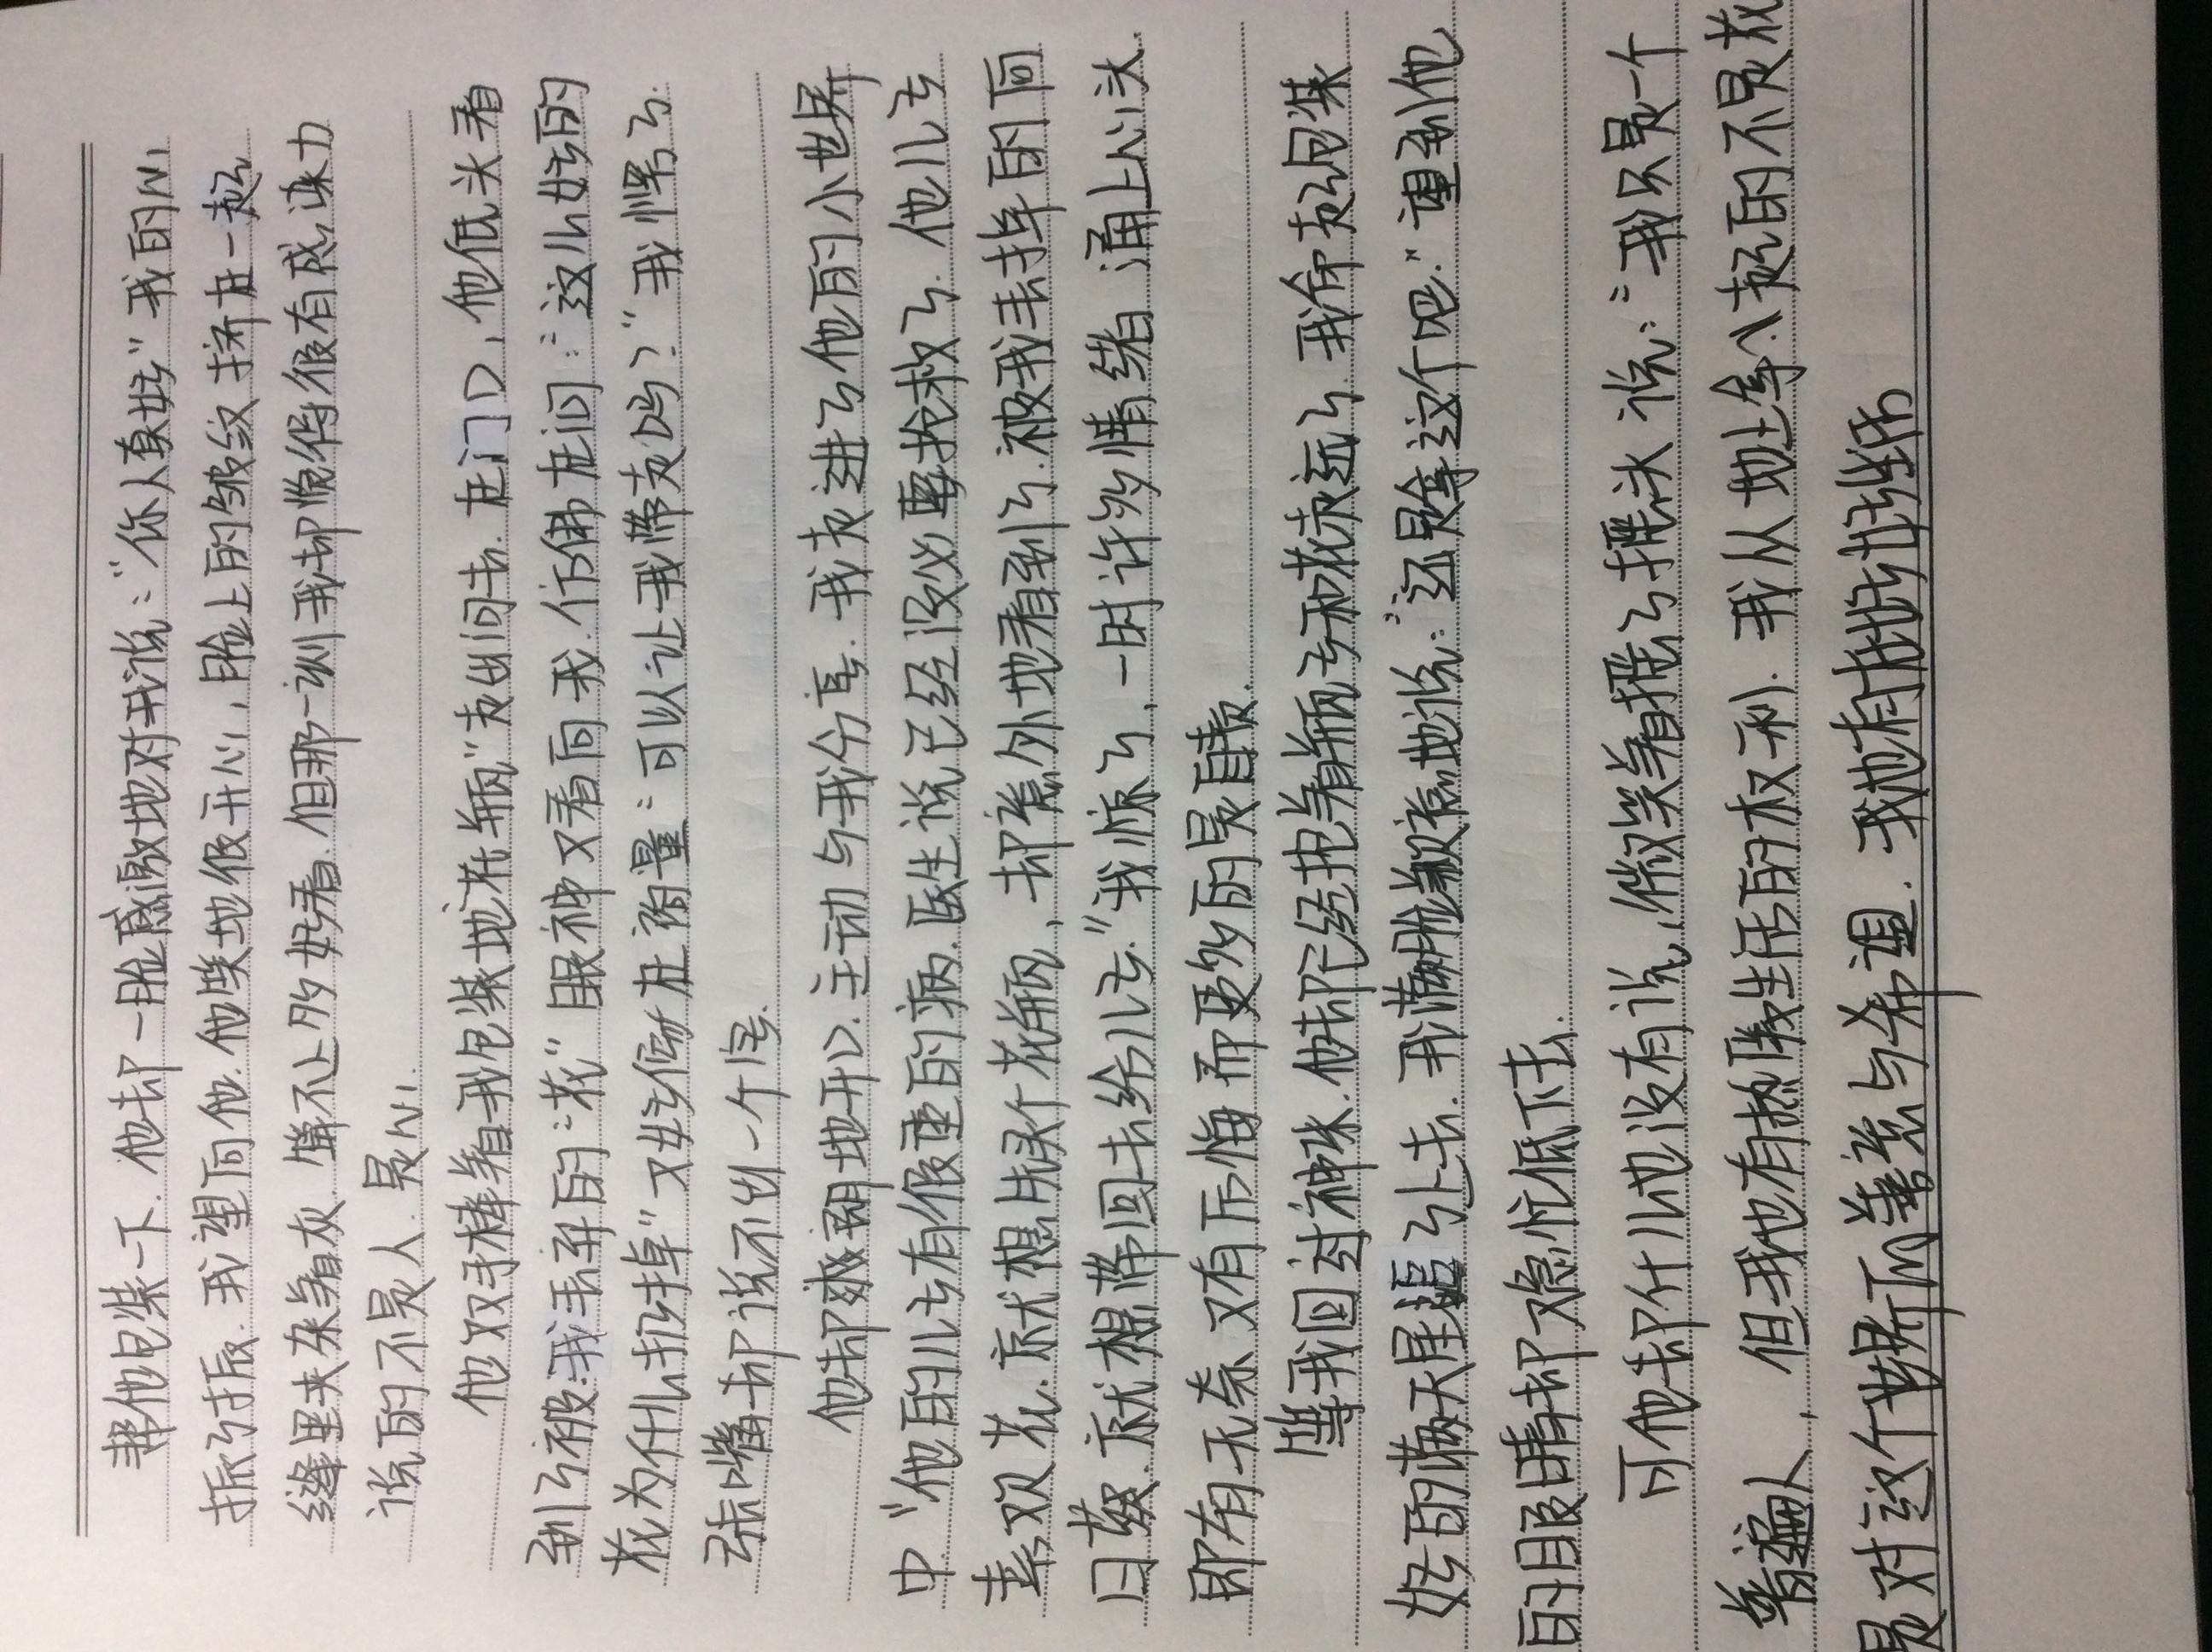 帮他包装一下.他却一脸感激地对我说:"你人真好"我的心
振了振.我望向他.他笑地很开心,脸上的皱纹挤在一起
缝里夹杂着灰.算不上多好看.但那一训我却觉得很有感染力
说的不是人.是心.
他双手棒着我包装地花瓶"走出问去.在门口,他低头看
到了被我丢弃的"花"眼神又看向我.仿佛在问:"这儿好的
花为什儿扔掉"又好像在商量:可以让我带走吗?"我愕了.
张嘴却说不出一个字.
他却爽朗地开口.主动与我分享.我走进了他的小世界
中"他的儿子有很重的病.医生说已经没必要抢救了.他儿子
素双花.就想用那个花瓶,却意外地看到了.被我丢掉的向
日葵.就想带回去给儿子."我惊了,一时许多情绪涌上心头.
即有无奈.又有后悔而更多的是自责.
等我回过神咪.他却已经抱着瓶子和花走远了.我命走包装
好的满天星追了上去.我满脸歉意地说:"还是拿这个吧."遞到他
的眼睛却急忙低下去.
可他却什儿也没有说,微笑着摇了摇头说:"我只是一个
普遍人,但我也有热腾生活的权利.我从地上拿起的不是花
是对这个世界所善意与希望.我也有把垃圾